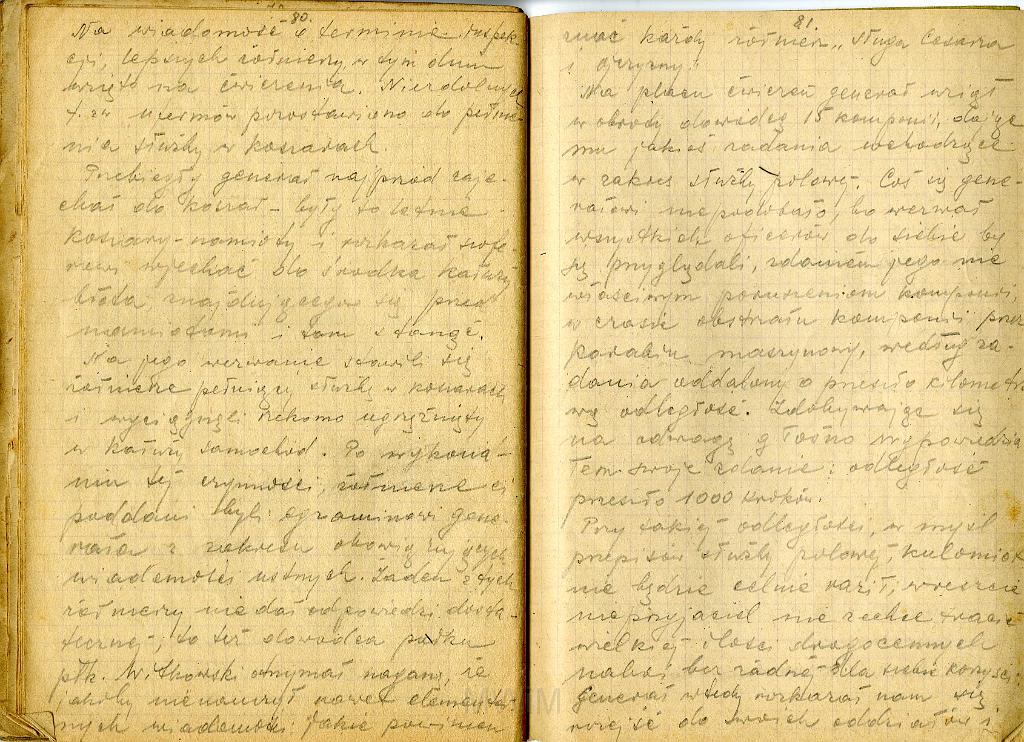 80.
Na wiadomość o terminie inspek-
cji, lepszych żołnierzy w tym dniu
wzięto na ćwiczenia. Niezdolnych
t. zw. pozostawiono do pełnie-
nia służby w koszarach.
Przebiegły generał najprzód zaje-
chał do koszar - były to letnie
koszary - namioty i rozkazał szofe-
rowi wjechać do środka kałuży
błota, znajdującego się przed
namiotami i tam stanąć.
Na jego wezwanie stawili się
żołnierze pełniący służby w koszarach
i wyciągnęli rzekomo ugrzęźnięty
w kałuży samochód. Po wykona-
niu tej czynności, żołnierze ci
poddani byli egzaminowi gene-
rała z zakresu obowiązujących
wiadomości ustnych. Żaden z tych
żołnierzy nie dał odpowiedzi dosta-
tecznej, to też dowódca pułku
płk. Witkowski otrzymał naganę, że
jakoby nie nauczył nawet elementar-
nych wiadomości jakie powinien
81.
znać każdy żołnierz „sługa Cesarza
i ojczyzny".
Na placu ćwiczeń generał wziął
w obroty dowódcę 15 kompanii, dając
mu jakieś zadania wchodzące
w zakres służby polowej. Coś się gene-
rałowi nie podobało, bo wezwał
wszystkich oficerów do siebie by
się przyglądali, zdaniem jego nie
właściwym poruszeniom kompanii,
w czasie obstrzału kompanii przez
karabin maszynowy, według za-
dania oddalony o przeszło kilometro-
wą odległość. Zdobywając się
na odwagę głośno wypowiedzia-
łem swoje zdanie: odległość
przeszło 1000 kroków.
Przy takiej odległości, w myśl
przepisów służby polowej, kulomiot
nie będzie celnie raził, wreszcie
nieprzyjaciel nie zechce tracić
wielkiej ilości drogocennych
naboi bez żadnej dla siebie korzyści.
Generał wtedy rozkazał nam się
rozejść do swoich oddziałów i